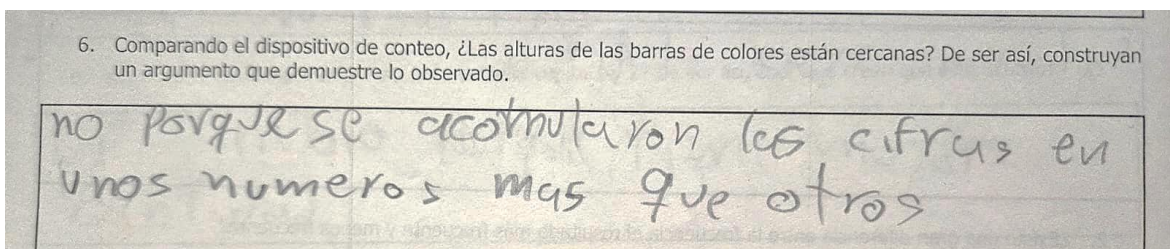 6. Comparando el dispositivo de conteo, ¿Las alturas de las barras de colores están cercanas? De ser así, construyan
un argumento que demuestre lo observado.
no porque se acomularon las cifras en
unos numeros mas que otros